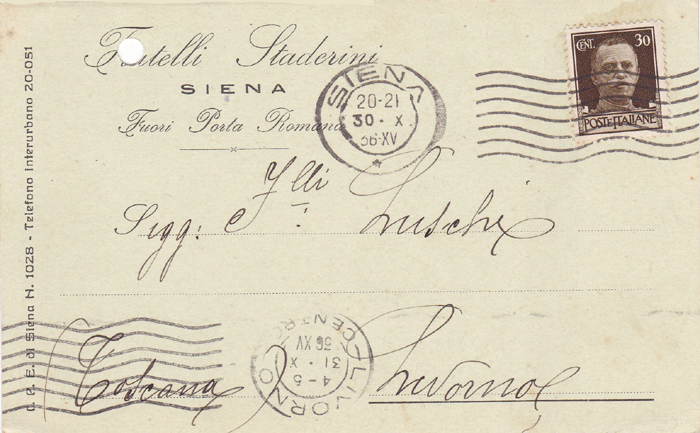 Fratelli Staderini
SIENA
Fuori Porta Romana
C. P. E. di Siena N. 1028 - Telefono Interurbano 20-051
CENT. 30
POSTE ITALIANE
SIENA
20-21
30 · X
36·XV
Sigg: Flli Luschi
Toscana
Livorno
LIVORNO
CENTRO
4-5
31 · X
36 XV